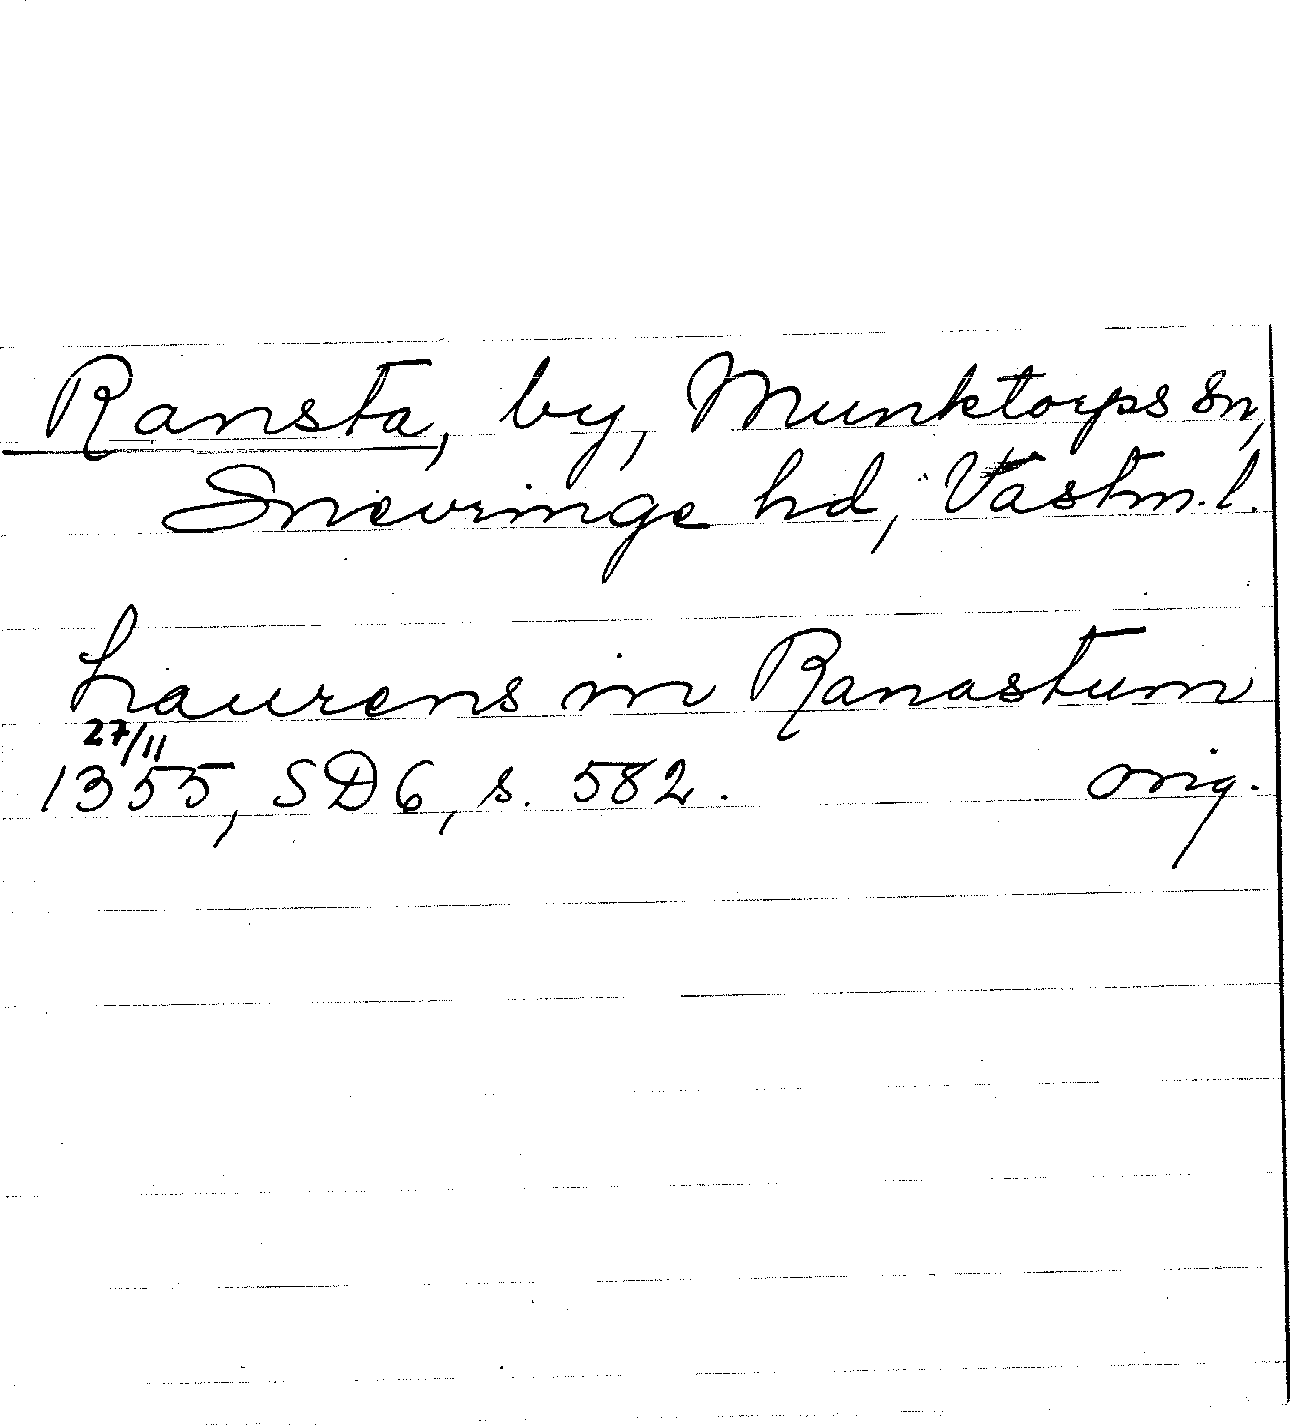 Ransta, by, Munktorps sn,
Snevringe hd, Västm. l.
Laurens in Ranastum
27/11
1355, SD 6, s. 582. orig.